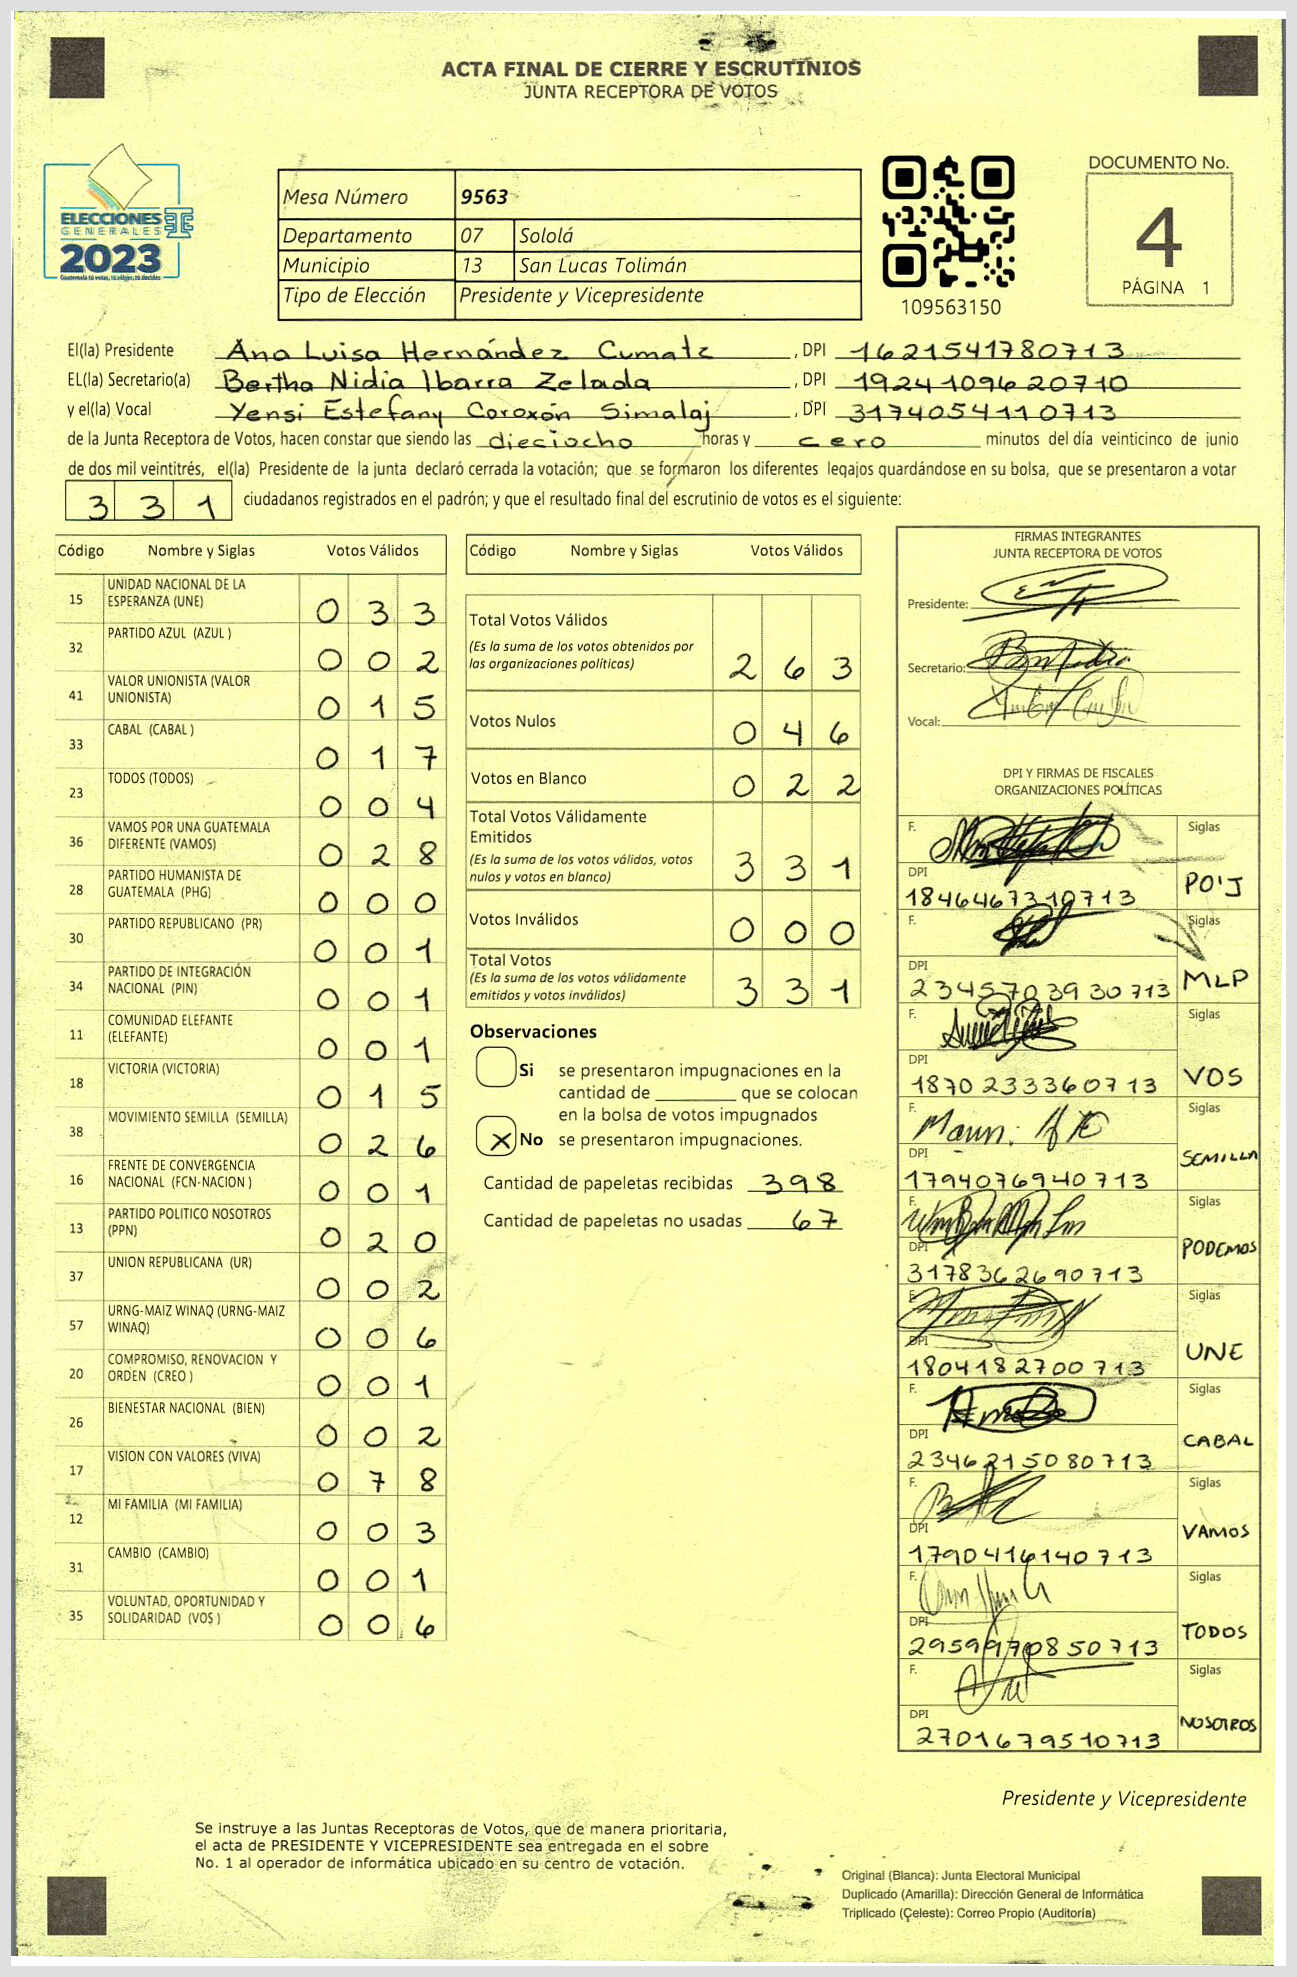 ACTA FINAL DE CIERRE Y ESCRUTINIOS
JUNTA RECEPTORA DE VOTOS
ELECCIONES
GENERALES
2023
Guatemala tú votas, tú eliges, tú decides
Mesa Número 9563
Departamento 07 Sololá
Municipio 13 San Lucas Tolimán
Tipo de Elección Presidente y Vicepresidente
109563150
DOCUMENTO No.
4
PÁGINA 1
El(la) Presidente Ana Luisa Hernández Cumatz , DPI 1621541780713
EL(la) Secretario(a) Bertha Nidia Ibarra Zelada , DPI 1924109620710
y el(la) Vocal Yensi Estefany Coroxón Simalaj , DPI 3174054110713
de la Junta Receptora de Votos, hacen constar que siendo las dieciocho horas y cero minutos del día veinticinco de junio
de dos mil veintitrés, el(la) Presidente de la junta declaró cerrada la votación; que se formaron los diferentes legajos guardándose en su bolsa, que se presentaron a votar
331 ciudadanos registrados en el padrón; y que el resultado final del escrutinio de votos es el siguiente:
Código Nombre y Siglas Votos Válidos
15 UNIDAD NACIONAL DE LA ESPERANZA (UNE) 033
32 PARTIDO AZUL (AZUL ) 002
41 VALOR UNIONISTA (VALOR UNIONISTA) 015
33 CABAL (CABAL ) 017
23 TODOS (TODOS) 004
36 VAMOS POR UNA GUATEMALA DIFERENTE (VAMOS) 028
28 PARTIDO HUMANISTA DE GUATEMALA (PHG) 000
30 PARTIDO REPUBLICANO (PR) 001
34 PARTIDO DE INTEGRACIÓN NACIONAL (PIN) 001
11 COMUNIDAD ELEFANTE (ELEFANTE) 001
18 VICTORIA (VICTORIA) 015
38 MOVIMIENTO SEMILLA (SEMILLA) 026
16 FRENTE DE CONVERGENCIA NACIONAL (FCN-NACION ) 001
13 PARTIDO POLITICO NOSOTROS (PPN) 020
37 UNION REPUBLICANA (UR) 002
57 URNG-MAIZ WINAQ (URNG-MAIZ WINAQ) 006
20 COMPROMISO, RENOVACION Y ORDEN (CREO ) 001
26 BIENESTAR NACIONAL (BIEN) 002
17 VISION CON VALORES (VIVA) 078
12 MI FAMILIA (MI FAMILIA) 003
31 CAMBIO (CAMBIO) 001
35 VOLUNTAD, OPORTUNIDAD Y SOLIDARIDAD (VOS ) 006
Código Nombre y Siglas Votos Válidos
Total Votos Válidos
(Es la suma de los votos obtenidos por
las organizaciones políticas) 263
Votos Nulos 046
Votos en Blanco 022
Total Votos Válidamente
Emitidos
(Es la suma de los votos válidos, votos
nulos y votos en blanco) 331
Votos Inválidos 000
Total Votos
(Es la suma de los votos válidamente
emitidos y votos inválidos) 331
Observaciones
Si se presentaron impugnaciones en la
cantidad de ________ que se colocan
en la bolsa de votos impugnados
X No se presentaron impugnaciones.
Cantidad de papeletas recibidas 398
Cantidad de papeletas no usadas 67
FIRMAS INTEGRANTES
JUNTA RECEPTORA DE VOTOS
Presidente:
Secretario:
Vocal:
DPI Y FIRMAS DE FISCALES
ORGANIZACIONES POLÍTICAS
F. Siglas
DPI 1846467310713 PO'J
F. Siglas
DPI 2345703930713 MLP
F. Siglas
DPI 1870233360713 VOS
F. Siglas
DPI 1794076940713 SEMILLA
F. Siglas
DPI 3178362690713 PODEMOS
F. Siglas
DPI 1804182700713 UNE
F. Siglas
DPI 2346215080713 CABAL
F. Siglas
DPI 1790416140713 VAMOS
F. Siglas
DPI 2959970850713 TODOS
F. Siglas
DPI 2701679510713 NOSOTROS
Presidente y Vicepresidente
Se instruye a las Juntas Receptoras de Votos, que de manera prioritaria,
el acta de PRESIDENTE Y VICEPRESIDENTE sea entregada en el sobre
No. 1 al operador de informática ubicado en su centro de votación.
Original (Blanca): Junta Electoral Municipal
Duplicado (Amarilla): Dirección General de Informática
Triplicado (Celeste): Correo Propio (Auditoría)